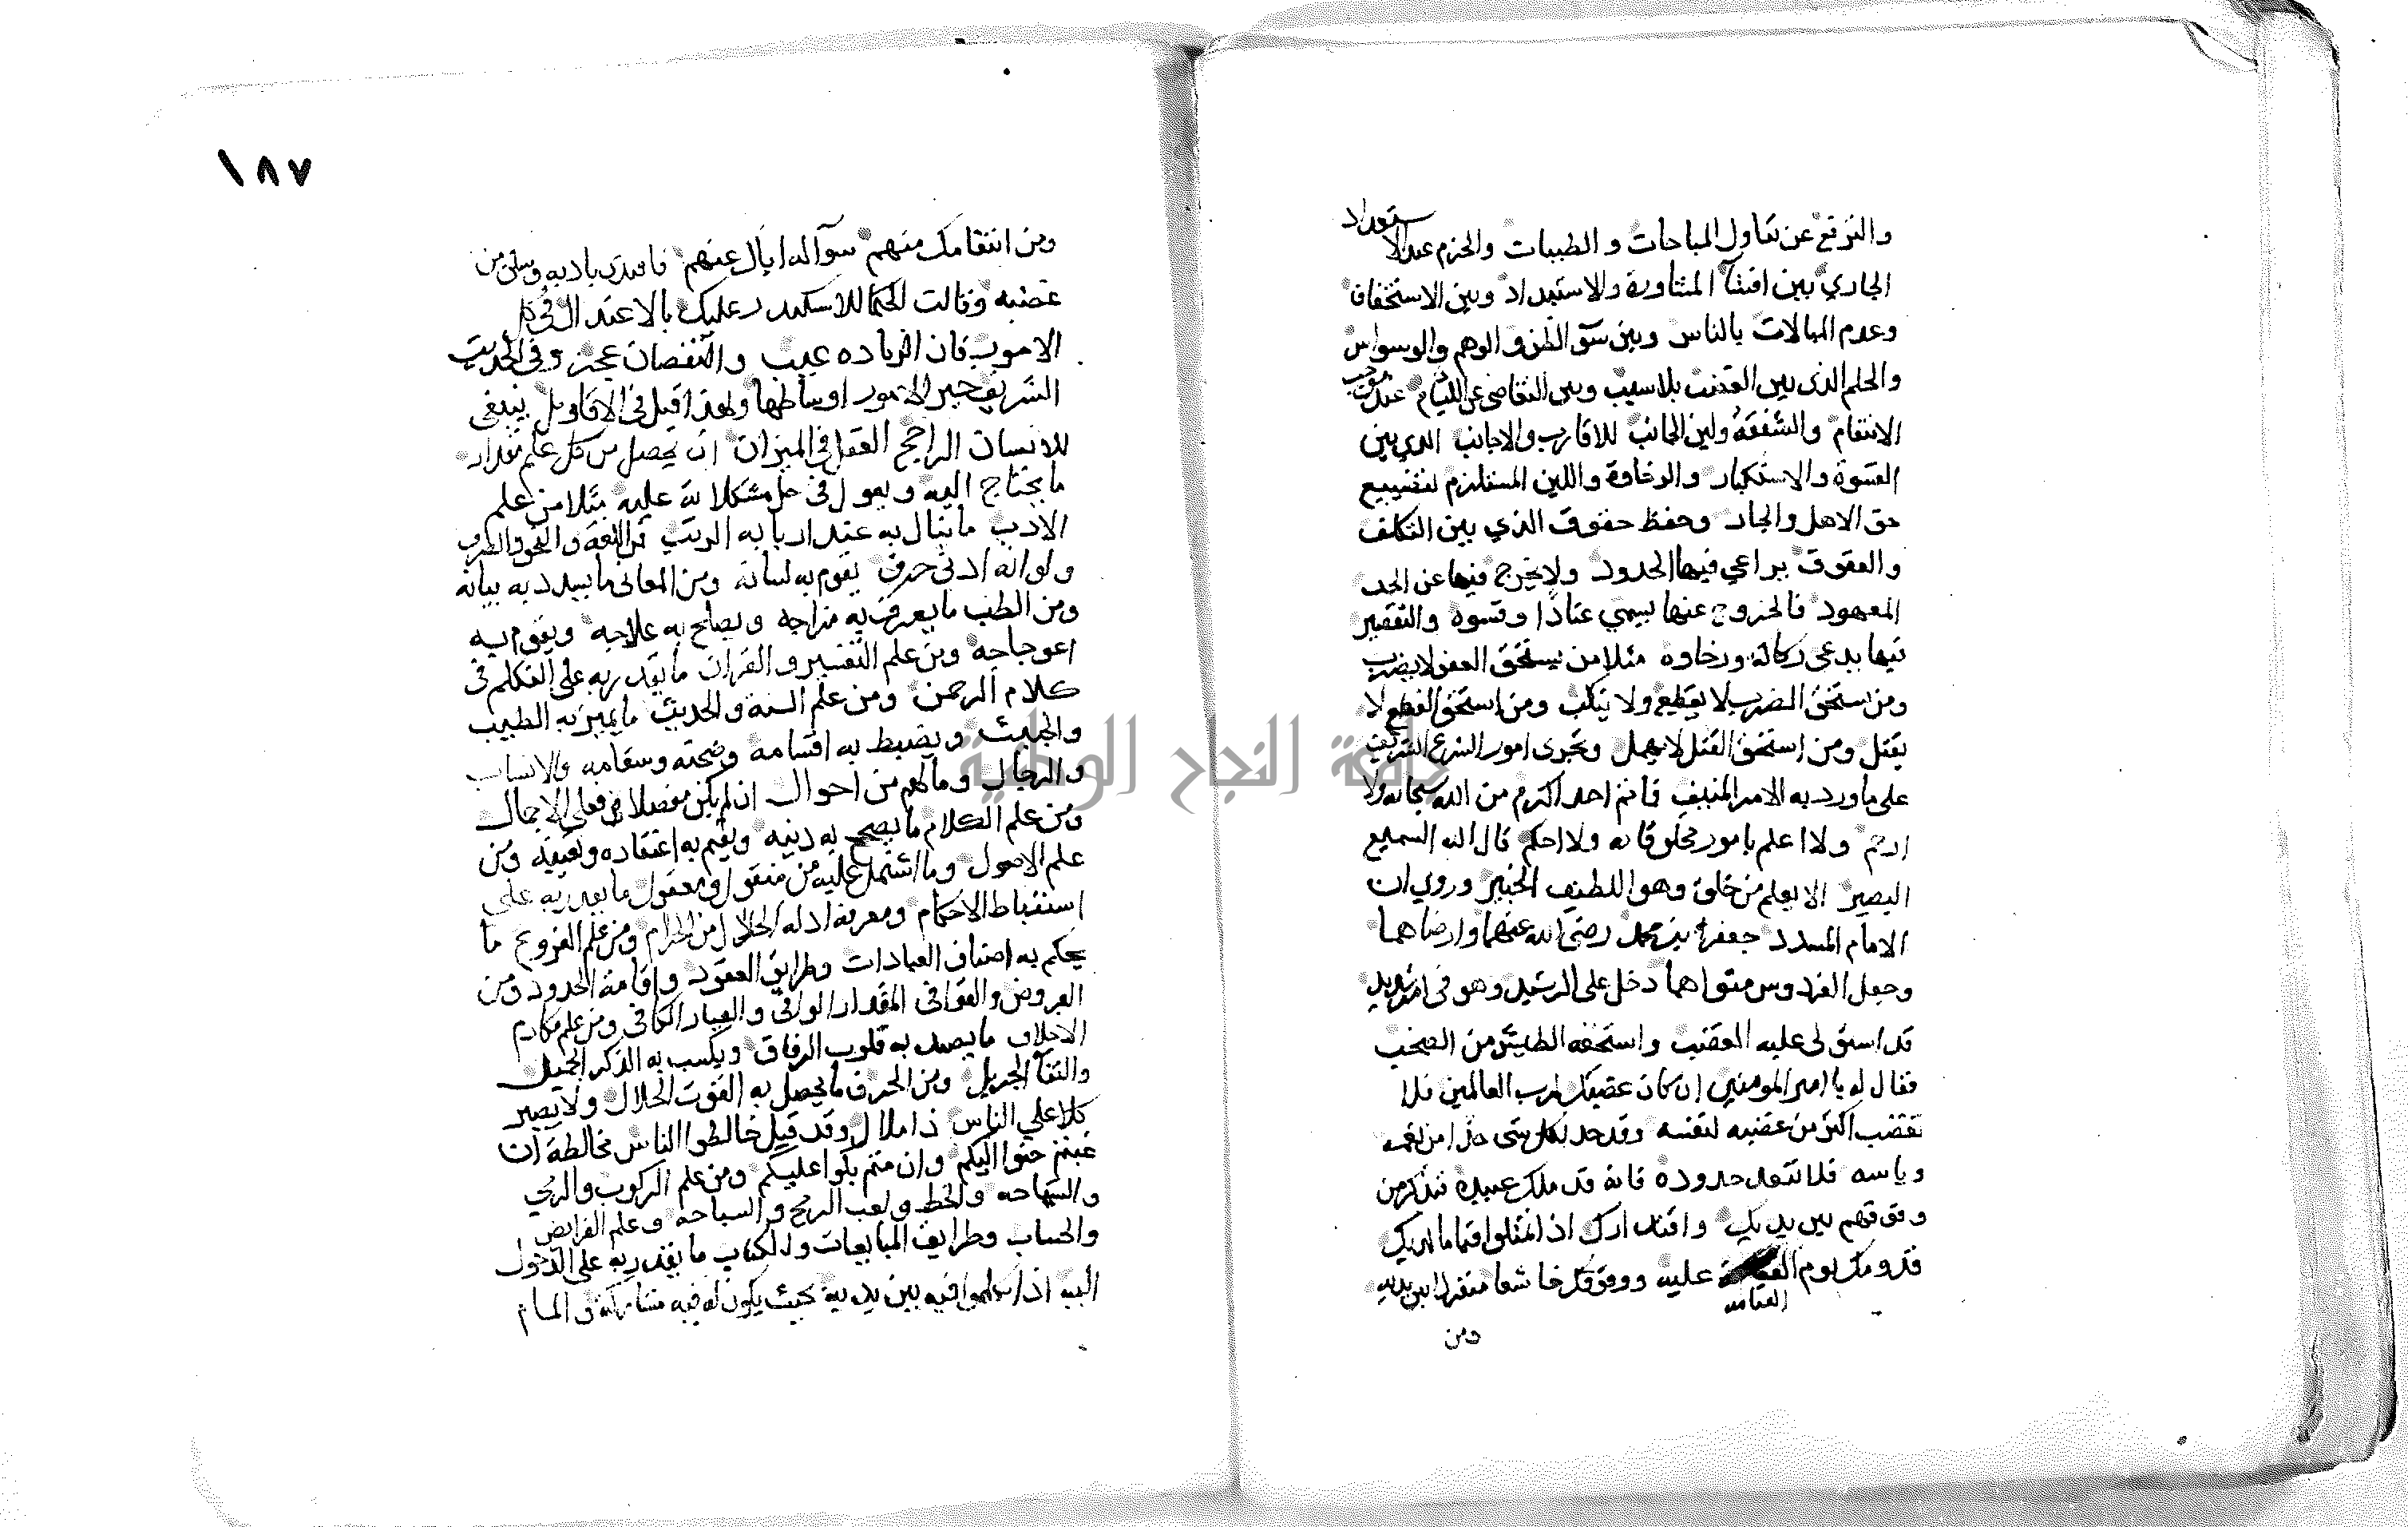 والترفع عن تناول المباحات والطيبات والحزم عند الاستعداد
الجاري بين افشآ المشاورة والاستبداد وبين الاستخفاف
وعدم المبالات بالناس وبين سوء الظن والوهم والوسواس
والحلم الذي بين الغضب بلا سبب وبين التقاضي عن الليام عند موجب
الانتقام والشفقة ولين الجانب للاقارب والاجانب الذي بين
القسوة والاستكبار والرخاوة واللين المستلزم لتضييع
حق الاهل والجار وحفظ حقوق الذي بين التكلف
والعقوق يراعي فيها الحدود ولا يخرج فيها عن الحد
المعهود فالخروج عنها يسمي عنادا وقسوة والتقصير
فيها يدعى ركاكة ورخاوه مثلا من يستحق العفو لا يضرب
ومن استحق الضرب لا يقطع ولا ينكب ومن استحق القطع لا
يقتل ومن استحق القتل لا يهمل وتجري امور الشرع الشريف
على ما ورد به الامر المنيف فانم احد اكرم من الله سبحانه ولا
ارحم ولا اعلم بامور مخلوقاته ولا احكم قال الله السميع
البصير الا يعلم من خلق وهو اللطيف الخبير وروي ان
الامام المسدد جعفر بن محمد رضي الله عنهما وارضاهما
وجعل الفردوس مثواهما دخل على الرشيد وهو في امر شديد
قد استولى عليه الغضب واستخفه الطيش من الصخب
فقال له يا امير المومنين ان كان غضبك لرب العالمين فلا
تغضب اكثر من غضبه لنفسه وقد حد لكل شي حدا من نعمه
وباسه فلا تتعد حدوده فانه قد ملك عبيده فتذكر من
وقوفهم بين يديك واقتدارك اذا مثلوا قياما لديك
قدومك يوم القيامة عليه ووقوفك خاشعا متفردا بين يديه
القيامة
ومن
١٨٧
ومن انتقامك منهم سوآله اياك عنهم فاهتدى بادبه وسكن من
غضبه وقالت الحكما للاسكندر عليك بالاعتدال في كل
الامور فان الزياده عيب والنقصان عجز وفي الحديث
الشريف خير الامور اوساطها ولهذا قيل في الاقاويل ينبغي
للانسان الراجح العقل في الميزان ان يحصل من كل علم مقدار
ما يحتاج اليه ويعول في حل مشكلاته عليه مثلا من علم
الادب ما ينال به عند اربابه الرتب من اللغة والنحو والصرف
ولو انه ادني حرف يقوم به لسانه ومن المعاني ما يسدد به بيانه
ومن الطب ما يعرف به مزاجه ويصلح به علاجه ويقوم به
اعوجاجه ومن علم التفسير والقران ما يقدر به على التكلم في
كلام الرحمن ومن علم السنة والحديث ما يميز به الطيب
والخبيث ويضبط به اقسامه وصحته وسقامه والانساب
والرجال ومالهم من احوال ان لم يكن مفصلا فعلى الاجمال
ومن علم الكلام ما يصحح به دينه ويقيم به اعتقاده ويقينه ومن
علم الاصول وما اشتمل عليه من منقول ومعقول ما يقدر به على
استنباط الاحكام ومعرفة ادلة الحلال من الحرام ومن علم الفروع ما
يحكم به اصناف العبادات وطرايق العقود واقامة الحدود ومن
العروض والقوافي المقدار الوافي والعيار الكافي ومن علم مكارم
الاخلاق ما يصيد به قلوب الرفاق ويكسب به الذكر الجميل
والثنآ الجزيل ومن الحرف ما يحصل به القوت الحلال ولا يصير
كلا علي الناس ذا ملال وقد قيل خالطوا الناس مخالطة ان
غبتم حنوا اليكم وان متم بكوا عليكم ومن علم الركوب والرمي
والسماحه والخط ولعب الرمح والسباحه وعلم الفرايض
والحساب وطرايف المبايعات والكتاب ما يقدر به على الدخول
اليه اذا تكلموا فيه بين يديه بحيث يكون له فيه مشاركة